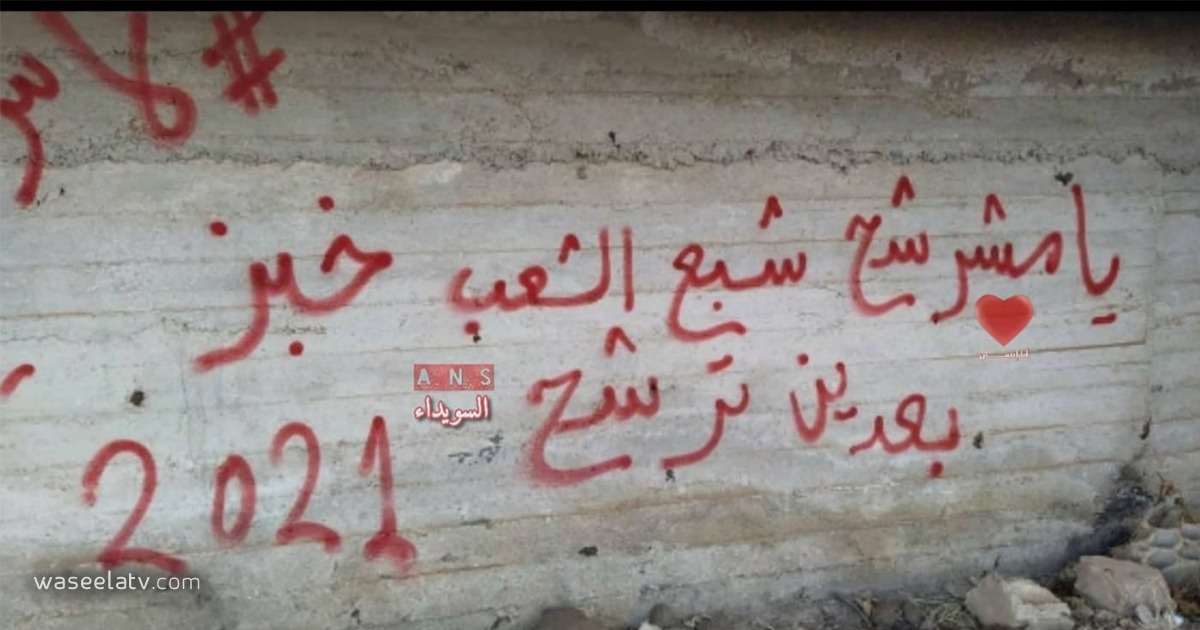 #لا
يا مشرشح شبع الشعب خبز
بعدين ترشح
2021
ANS
السويداء
waseelatv.com